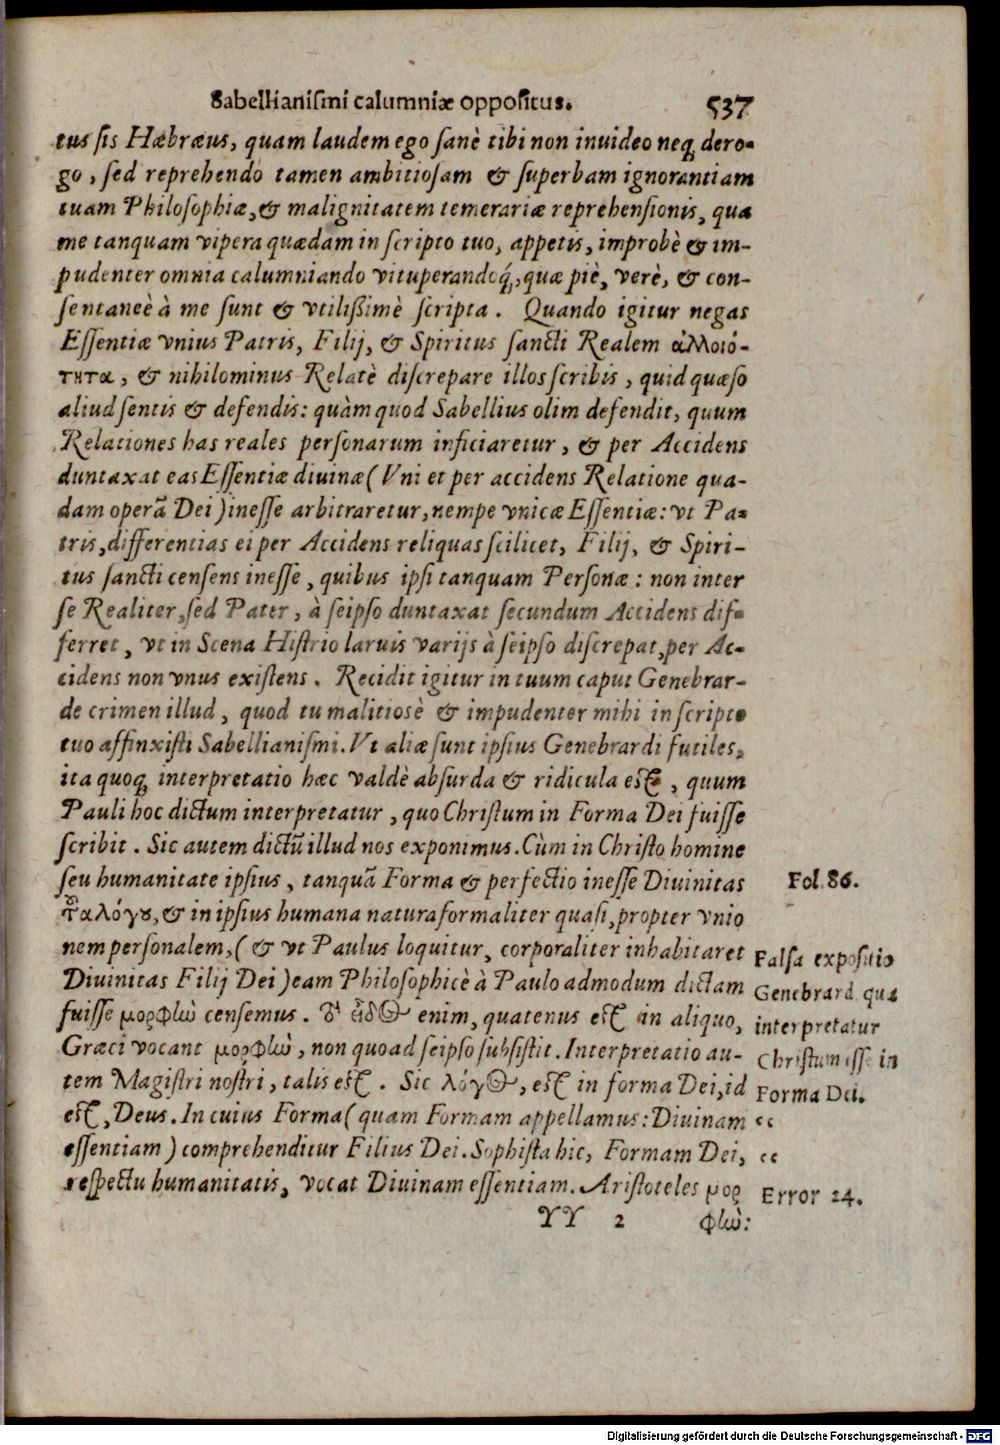 Sabellianiſmi calumniæ oppoſitus. 537
tus ſis Hæbræus, quam laudem ego ſanè tibi non inuideo neq; dero-
go, ſed reprehendo tamen ambitioſam & ſuperbam ignorantiam
tuam Philoſophiæ, & malignitatem temerariæ reprehenſionis, qua
me tanquam vipera quædam in ſcripto tuo, appetis, improbè & im-
pudenter omnia calumniando vituperandoq́;, quæ piè, verè, & con-
ſentaneè à me ſunt & vtilißimè ſcripta. Quando igitur negas
Eſſentiæ vnius Patris, Filij, & Spiritus ſancti Realem ἀλλοιό-
τητα, & nihilominus Relatè diſcrepare illos ſcribis, quid quæſo
aliud ſentis & defendis: quàm quod Sabellius olim defendit, quum
Relationes has reales perſonarum inficiaretur, & per Accidens
duntaxat eas Eſſentiæ diuinæ (Vni et per accidens Relatione qua-
dam operā Dei) ineſſe arbitraretur, nempe vnicæ Eſſentiæ: vt Pa-
tris, differentias ei per Accidens reliquas ſcilicet, Filij, & Spiri-
tus ſancti cenſens ineſſe, quibus ipſi tanquam Perſonæ: non inter
ſe Realiter, ſed Pater, à ſeipſo duntaxat secundum Accidens dif-
ferret, vt in Scena Hiſtrio laruis varijs à ſeipſo diſcrepat, per Ac-
cidens non vnus exiſtens. Recidit igitur in tuum caput Genebrar-
de crimen illud, quod tu malitiosè & impudenter mihi in ſcripto
tuo affinxiſti Sabellianiſmi. Vt aliæ ſunt ipſius Genebrardi futiles,
ita quoq; interpretatio hæc valdè abſurda & ridicula eſt, quum
Pauli hoc dictum interpretatur, quo Chriſtum in Forma Dei fuiſſe
ſcribit. Sic autem dictū illud nos exponimus. Cùm in Chriſto homine
ſeu humanitate ipſius, tanquā Forma & perfectio ineſſe Diuinitas Fol. 86.
τῶ λόγου, & in ipſius humana natura formaliter quaſi, propter vnio
nem perſonalem, (& vt Paulus loquitur, corporaliter inhabitaret Falſa expoſitio
Diuinitas Filij Dei) eam Philoſophicè à Paulo admodum dictam Genebrard. qua
fuiſſe μορφὴν cenſemus. τὸ εἶδος enim, quatenus eſt in aliquo, interpretatur
Græci vocant μορφὴν, non quoad ſeipſo ſubſiſtit. Interpretatio au- Chriſtum eſſe in
tem Magiſtri noſtri, talis eſt. Sic λόγος, eſt in forma Dei, id Forma Dei.
eſt, Deus. In cuius Forma (quam Formam appellamus: Diuinam “
eſſentiam) comprehenditur Filius Dei. Sophiſta hic, Formam Dei, “
reſpectu humanitatis, vocat Diuinam eſſentiam. Ariſtoteles μορ Error 24.
YY 2 φὴν:
Digitalisierung gefördert durch die Deutsche Forschungsgemeinschaft - DFG